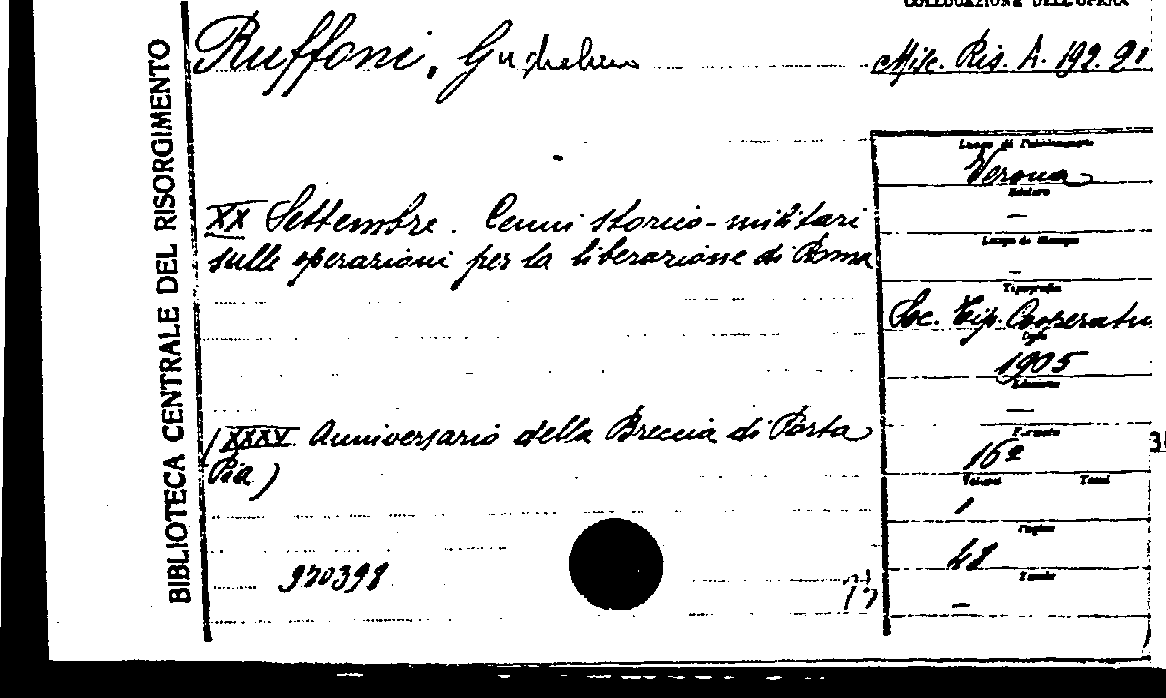 BIBLIOTECA CENTRALE DEL RISORGIMENTO
COLLOCAZIONE DELL'OPERA
Ruffoni,
Misc. Ris. A. 192. 21
XX Settembre. Cenni storico-militari
sulle operazioni per la liberazione di Roma
(XXXV Anniversario della Breccia di Porta
Pia)
970398
Luogo di Pubblicazione
Verona
Editore
—
Luogo di Stampa
—
Tipografia
Soc. Tip. Cooperativ
1905
Edizione
—
Formato
16º
Volumi Tomi
1
Pagine
48
Tavole
—